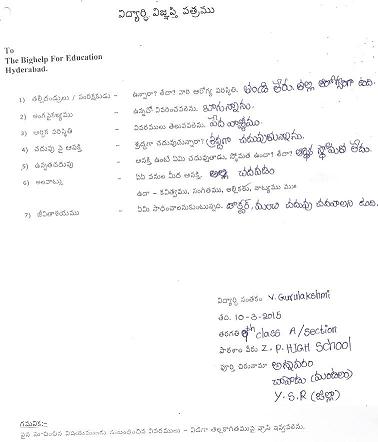 విద్యార్థి విజ్ఞప్తి పత్రము
To
The Bighelp For Education
Hyderabad.
1) తల్లిదండ్రులు / సంరక్షకుడు - ఉన్నారా? లేదా? వారి ఆరోగ్య పరిస్థితి. తండ్రి లేరు. తల్లి ఆరోగ్యంగా ఉంది.
2) అంగవైకల్యము - ఉన్నచో వివరించవలెను. బాగున్నాను.
3) ఆర్థిక పరిస్థితి - వివరములు తెలుపవలెను. పేద
4) చదువు పై ఆసక్తి - శ్రద్ధగా చదువుచున్నారా? శ్రద్ధగా చదువుతున్నాను.
5) ఉన్నతచదువు - ఆసక్తి ఉంటే ఏమి చదువుతాడు, స్తోమత ఉందా? లేదా? స్తోమత లేదు.
6) అలవాట్లు - ఏఏ పనుల మీద ఆసక్తి. చదవడం
ఉదా - కవిత్వము, సంగీతము, అల్లికలు, నాట్యము
7) జీవితాశయము - ఏమి సాధించాలనుకుంటున్నది. డాక్టర్, మంచి చదువు చదవాలని ఉంది.
విద్యార్థి సంతకం V. Gurulakshmi
తేది. 10-3-2015
తరగతి 9th class A/section
పాఠశాల పేరు Z.P. HIGH School
పూర్తి చిరునామా
చాపాడు (మండలం)
Y.S.R (జిల్లా)
గమనిక:-
పైన సూచించిన విషయములకు సంబంధించిన వివరములు - విడిగా తెల్లకాగితముపై వ్రాసి ఇవ్వవలెను.